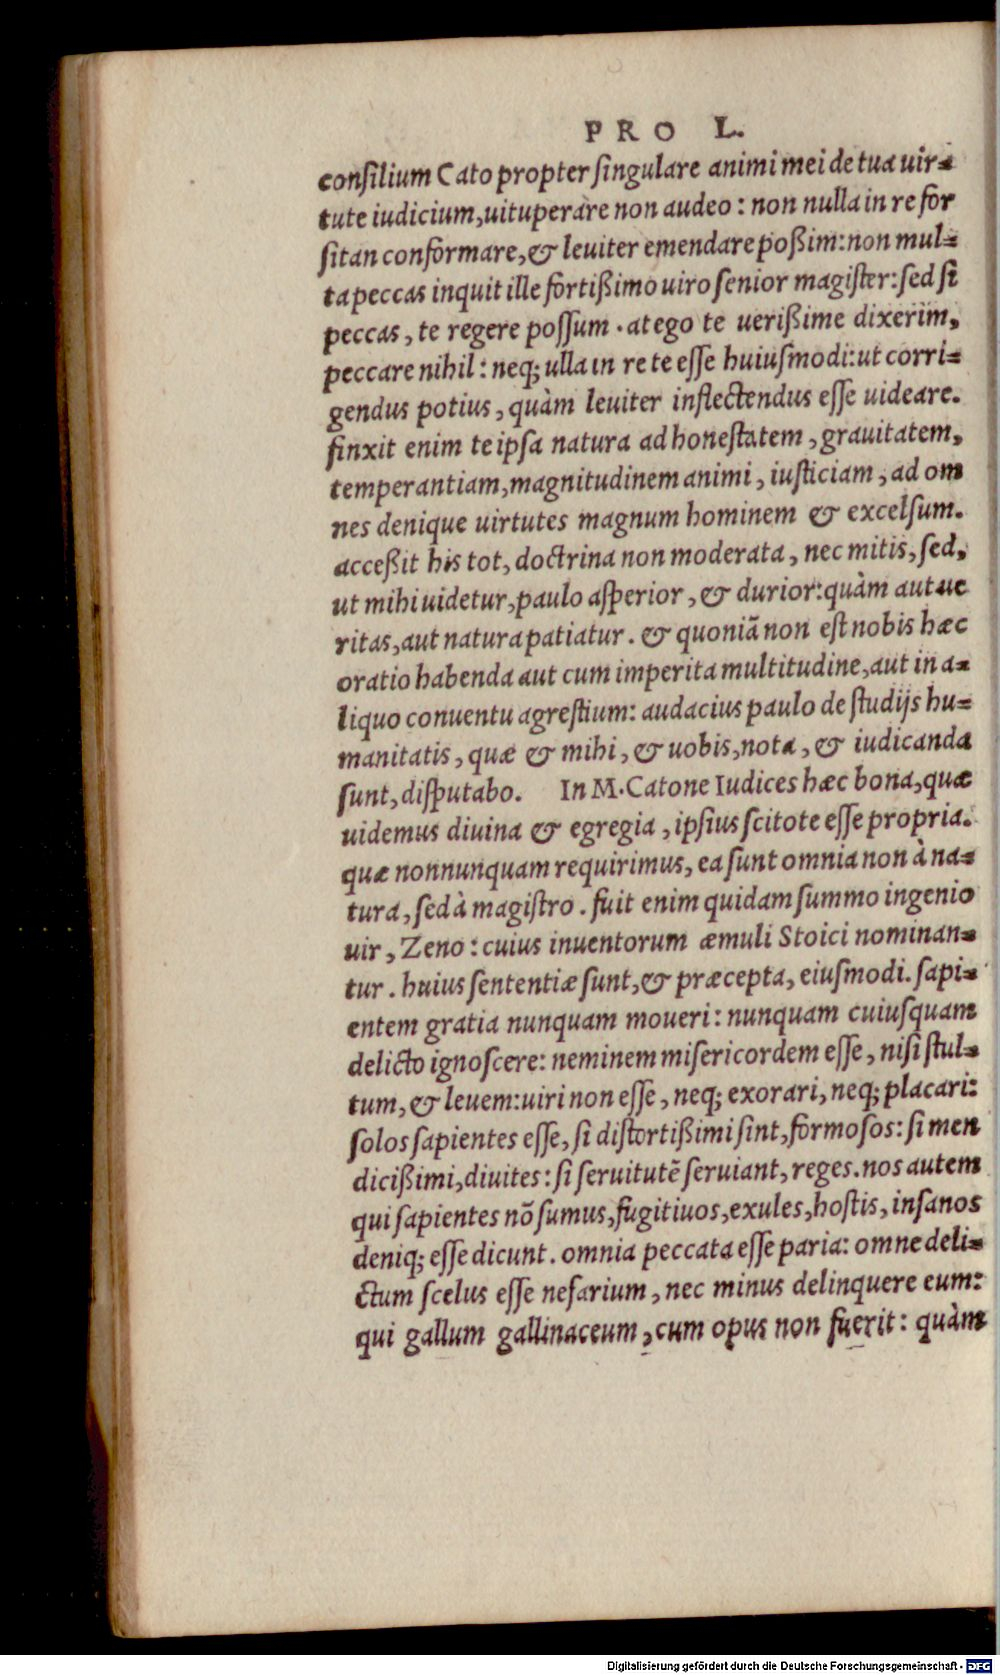 PRO L.
conſilium Cato propter ſingulare animi mei de tua uir-
tute iudicium, uituperare non audeo: non nulla in re for
ſitan conformare, & leuiter emendare poßim: non mul-
ta peccas inquit ille fortißimo uiro ſenior magiſter: ſed ſi
peccas, te regere poſſum. at ego te uerißime dixerim,
peccare nihil: neq; ulla in re te eſſe huiuſmodi: ut corri-
gendus potius, quàm leuiter inflectendus eſſe uideare.
finxit enim te ipſa natura ad honeſtatem, grauitatem,
temperantiam, magnitudinem animi, iuſticiam, ad om
nes denique uirtutes magnum hominem & excelſum.
acceßit his tot, doctrina non moderata, nec mitis, ſed,
ut mihi uidetur, paulo aſperior, & durior: quàm aut ue
ritas, aut natura patiatur. & quoniã non eſt nobis hæc
oratio habenda aut cum imperita multitudine, aut in a-
liquo conuentu agreſtium: audacius paulo de ſtudijs hu-
manitatis, quæ & mihi, & uobis, nota, & iudicanda
ſunt, diſputabo. In M. Catone Iudices hæc bona, quæ
uidemus diuina & egregia, ipſius ſcitote eſſe propria.
quæ nonnunquam requirimus, ea ſunt omnia non à na-
tura, ſed à magiſtro. fuit enim quidam ſummo ingenio
uir, Zeno: cuius inuentorum æmuli Stoici nominan-
tur. huius ſententiæ ſunt, & præcepta, eiuſmodi. ſapi-
entem gratia nunquam moueri: nunquam cuiuſquam
delicto ignoſcere: neminem miſericordem eſſe, niſi ſtul-
tum, & leuem: uiri non eſſe, neq; exorari, neq; placari:
ſolos ſapientes eſſe, ſi diſtortißimi ſint, formoſos: ſi men
dicißimi, diuites: ſi ſeruitutẽ ſeruiant, reges. nos autem
qui ſapientes nõ ſumus, fugitiuos, exules, hoſtis, inſanos
deniq; eſſe dicunt. omnia peccata eſſe paria: omne deli-
ctum ſcelus eſſe nefarium, nec minus delinquere eum:
qui gallum gallinaceum, cum opus non fuerit: quàm
Digitalisierung gefördert durch die Deutsche Forschungsgemeinschaft - DFG